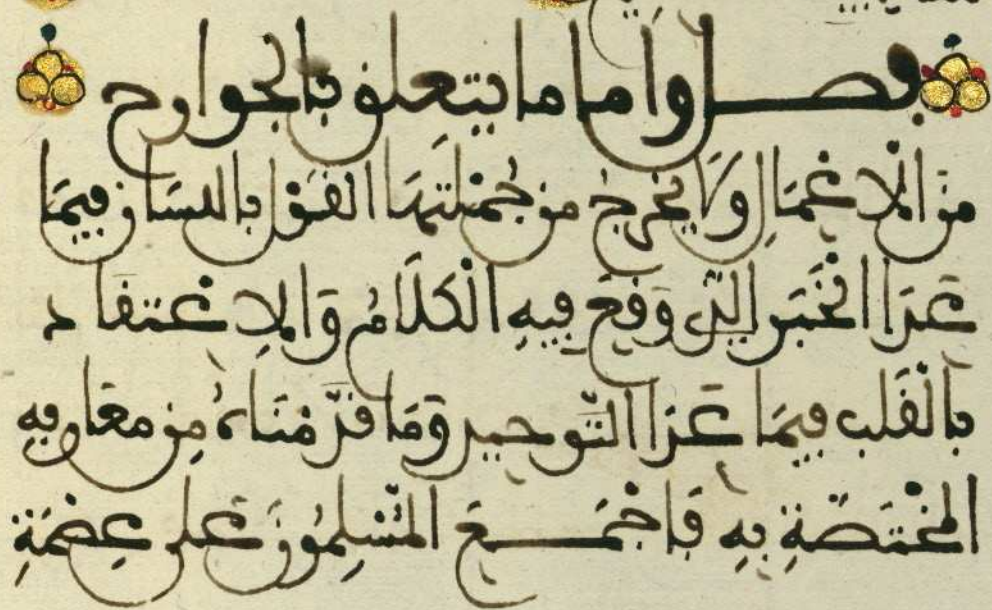 فصل واما ما يتعلق بالجوارح
مِنَ الْاَعْمَالِ وَلَا يَخْرُجُ مِن جُمْلَتِهَا الْقَوْلُ بِاللِّسَانِ فِيمَا
عَدَا الْخَبَرِ الذِي وَقَعَ فِيهِ الْكَلَامُ وَالِاعْتِقَادِ
بِالْقَلْبِ فِيمَا عَدَا التَّوحِيدِ وَمَا قَدَّمْنَاهُ مِن مَعَارِفِهِ
الْمُخْتَصَّةِ بِهِ فَاَجْمَعَ الْمُسْلِمُونَ عَلَى عِصْمَةِ